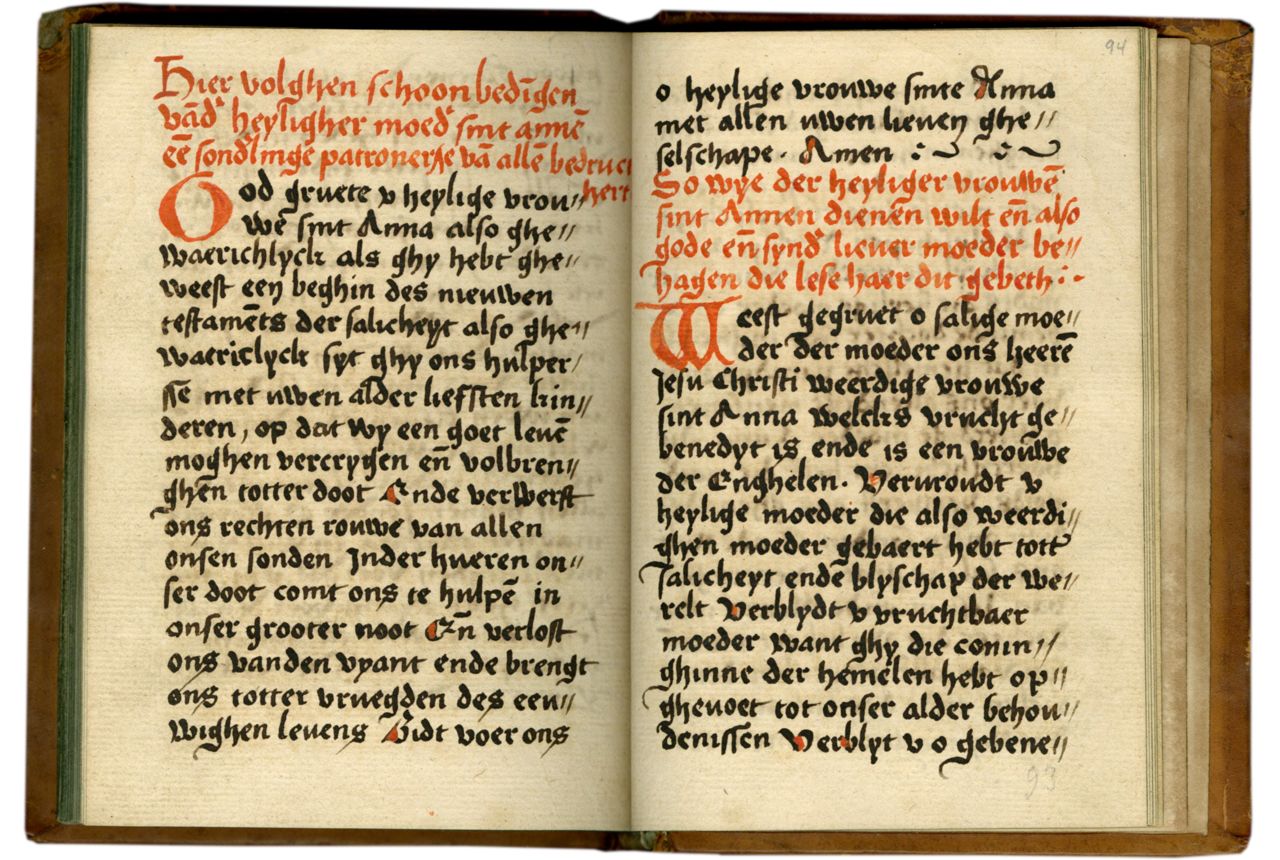 Hier volghen schoon bedīgen
vād' heyligher moed' sint annē
eē sondlinge patronerße vā allē bedruct
hert
God gruete v heylige vrou〃
wē sint Anna also ghe〃
waerichlyck als ghy hebt ghe〃
weest een beghin des nieuwen
testamēts der salicheyt also ghe〃
waericlyck syt ghy ons hulper/
sſē met uwen alder liefsten kin〃
deren, op dat wy een goet levē
moghen vercrygen eñ volbren〃
ghēn totter doot Ende verwerft
ons rechten rouwe van allen
onsen sonden Inder hueren on〃
ser doot comt ons te hulpē in
onser grooter noot Eñ verlost
ons vanden vyant ende brengt
ons totter vruegden des eeu〃
wighen levens Bidt voer ons
94
o heylige vrouwe sinte Anna
met allen uwen lieven ghe〃
selschape. Amen
So wye der heyliger vrouwē
sint Annen dienēn wilt eñ also
gode eñ synd' liever moeder be〃
hagen die lese haer dit gebeth:
Weest gegruet o salige moe〃
der der moeder ons heerē
Jesu Christi weerdige vrouwe
sint Anna welcks vrucht ge〃
benedyt is ende is een vroūwe
der Enghelen. Vervroudt v
heylige moeder die also weerdi〃
ghen moeder gebaert hebt tott'
salicheyt endē blyschap der we〃
relt Verblydt v vruchtbaer
moeder want ghy die conin〃
ghinne der hēmelen hebt op〃
ghevoet tot onser alder behou〃
denissen Verblyt v o gebene〃
93